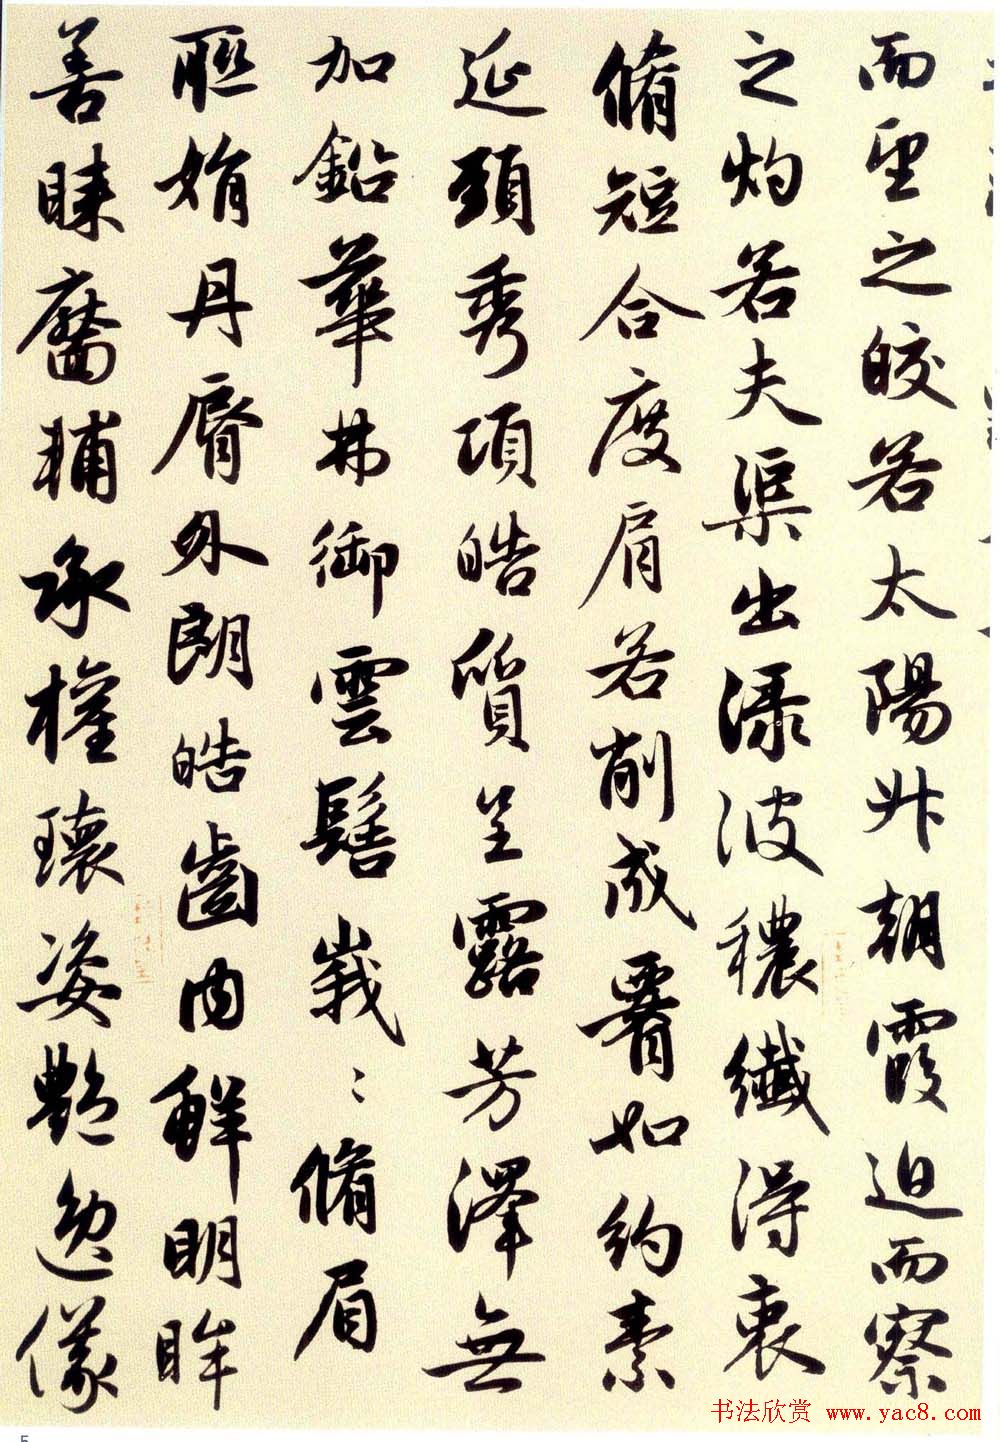 而望之皎若太陽升朝霞迫而察
之灼若夫渠出淥波穠纖得衷
脩短合度肩若削成䙴如約素
延頸秀項皓質呈露芳澤無
加鉛華弗御雲髻峩〻脩眉
聯娟丹脣外朗皓齒内鮮明眸
善睞靨輔承權瓌姿艷逸儀
书法欣赏 www.yac8.com
5